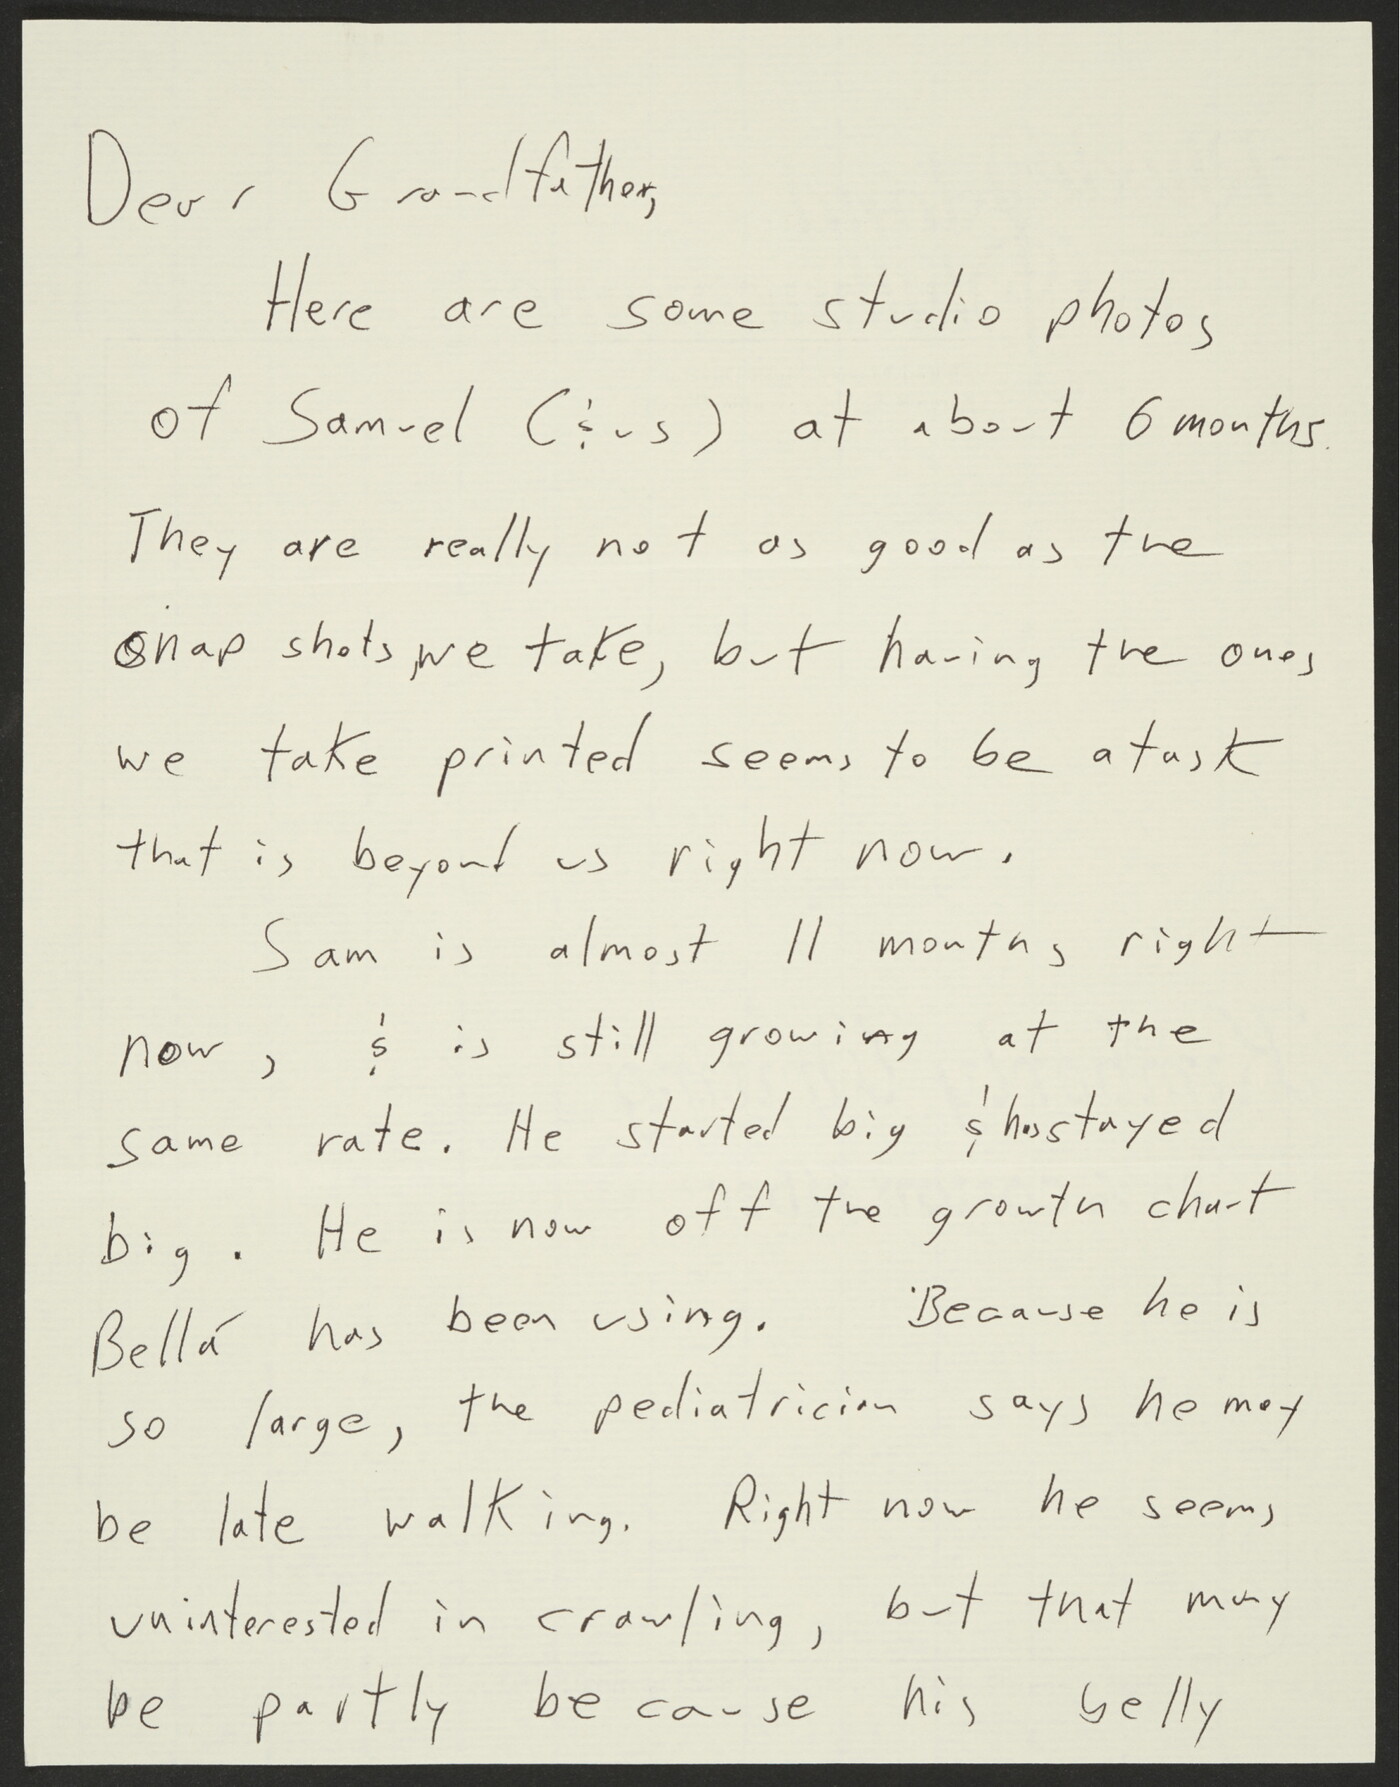 Dear Grandfather,
Here are some studio photos
of Samuel (& us) at about 6 months.
They are really not as good as the
snap shots we take, but having the ones
we take printed seems to be a task
that is beyond us right now.
Sam is almost 11 months right
now, & is still growing at the
same rate. He started big & has stayed
big. He is now off the growth chart
Bellá has been using. Because he is
so large, the pediatrician says he may
be late walking. Right now he seems
uninterested in crawling, but that may
be partly because his belly